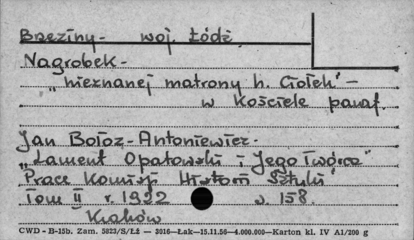 Brzeziny- woj. Łódź
Nagrobek-
„nieznanej matrony h. Ciołek" –
w Kościele paraf.
Jan Bołoz-Antoniewicz-
„Lament Opatowski i Jego Twórca"
Prace Komisji Historii Sztuki"
Tom II r. 1922 s. 158.
Kraków
CWD - B-15b. Zam. 5823/S/Łż — 3016—Łak—15.11.56—4.000.000—Karton kl. IV A1/200 g